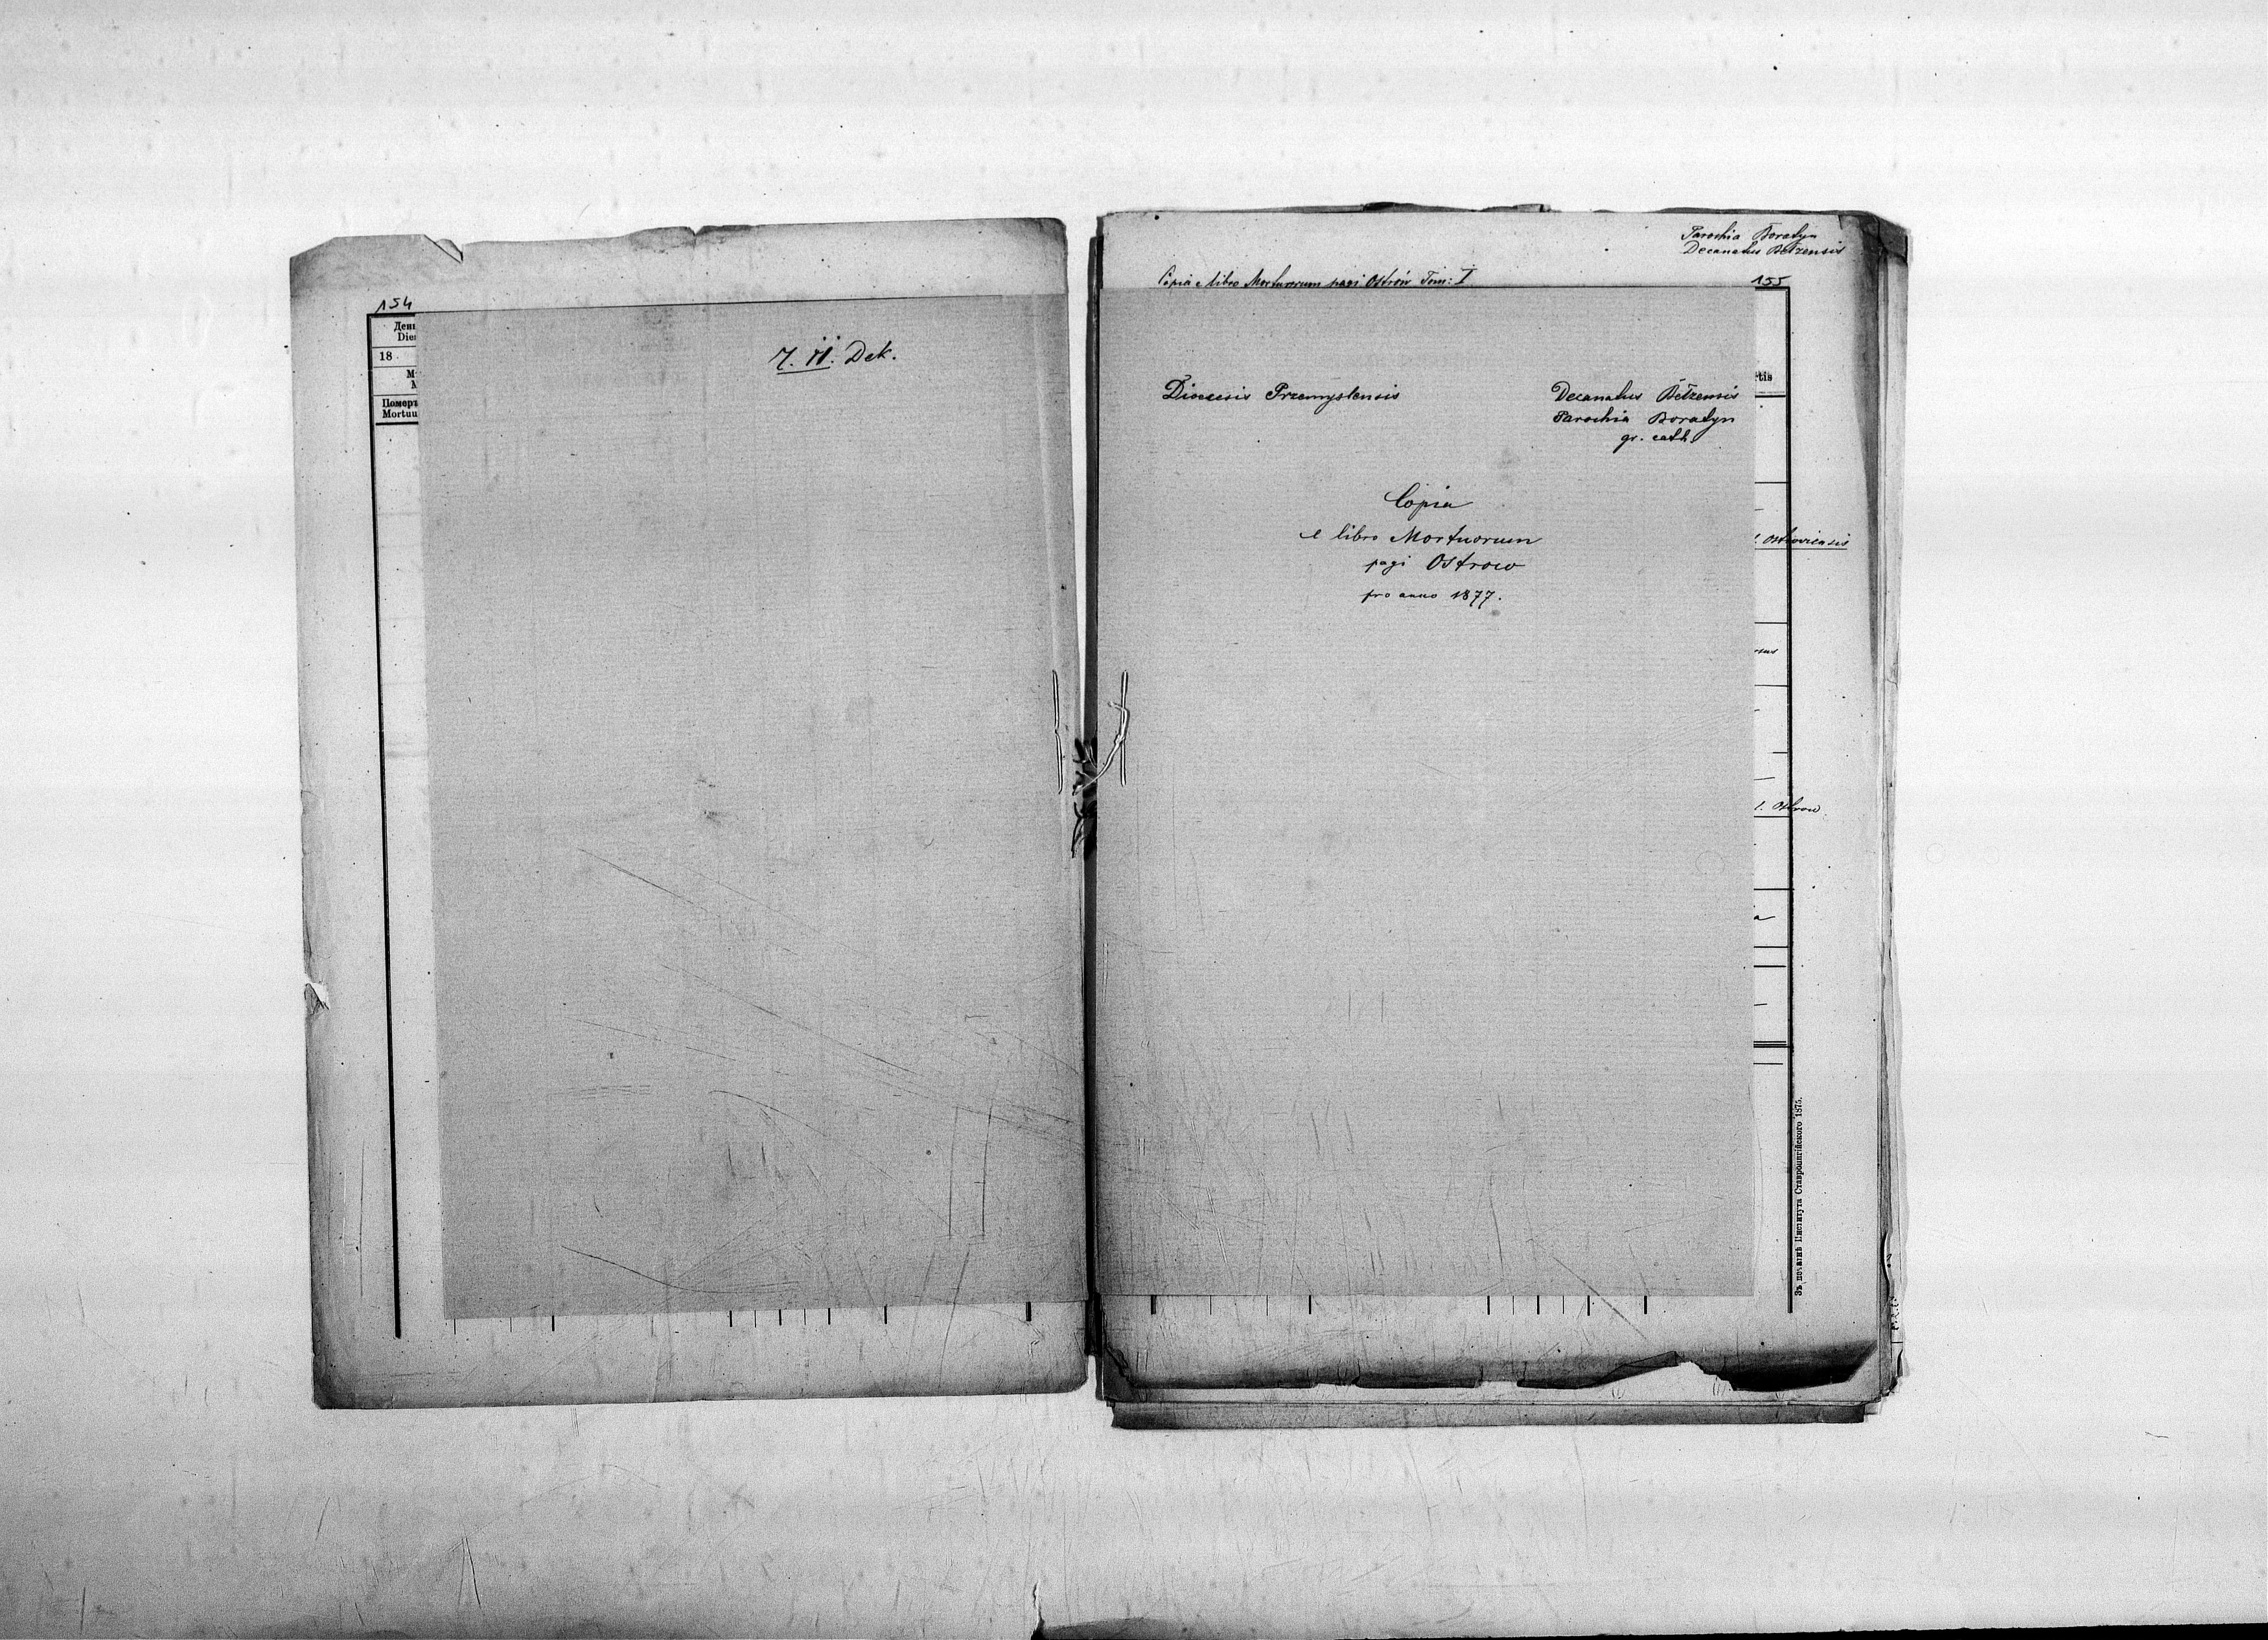 154
День
Dies
18
Помера
Mortuu
7. II. Dek.
Parochia Boratyn
Decanatus Bełzensis
Copia e libro Mortuorum pagi Ostrów Tom: I
155
Diecesis Przemyslensis
Decanatus Bełzensis
Parochia Boratyn
gr. cath.
Copia
e libro Mortuorum
pagi Ostrow
pro anno 1877.
rtis
Ostroviensis
Ostrow
Зъ печатнѣ Института Ставропигійского 1875.